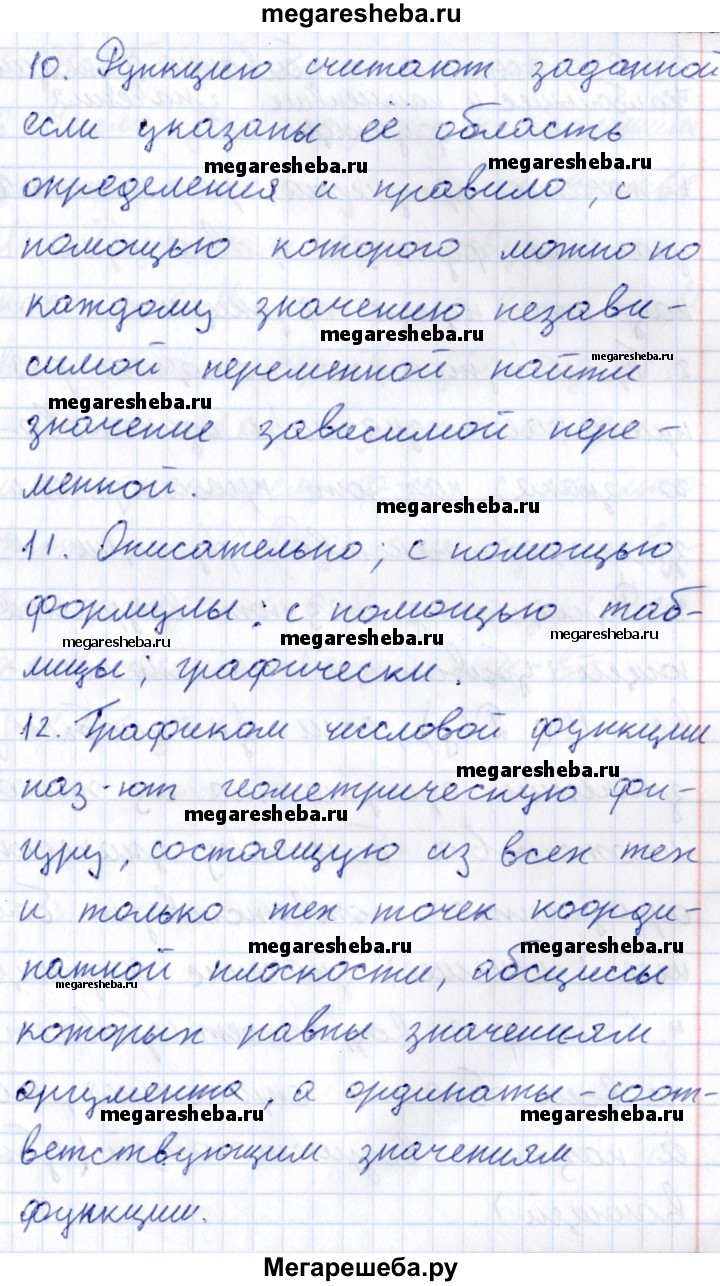 megaresheba.ru
10. Функцию считают заданной
если указаны её область
megaresheba.ru megaresheba.ru
определения и правило, с
помощью которого можно по
каждому значению незави-
megaresheba.ru
симой переменной найти
megaresheba.ru
megaresheba.ru
значение зависимой пере-
менной.
megaresheba.ru
11. Описательно; с помощью
формулы; с помощью таб-
megaresheba.ru megaresheba.ru megaresheba.ru
лицы; графически.
12. Графиком числовой функции
megaresheba.ru
наз-ют геометрическую фи-
megaresheba.ru
гуру, состоящую из всех тех
и только тех точек коорди-
megaresheba.ru megaresheba.ru
натной плоскости, абсциссы
megaresheba.ru
которых равны значениям
аргумента, а ординаты - соот-
megaresheba.ru megaresheba.ru
ветствующим значениям
функции.
Мегарешеба.ру